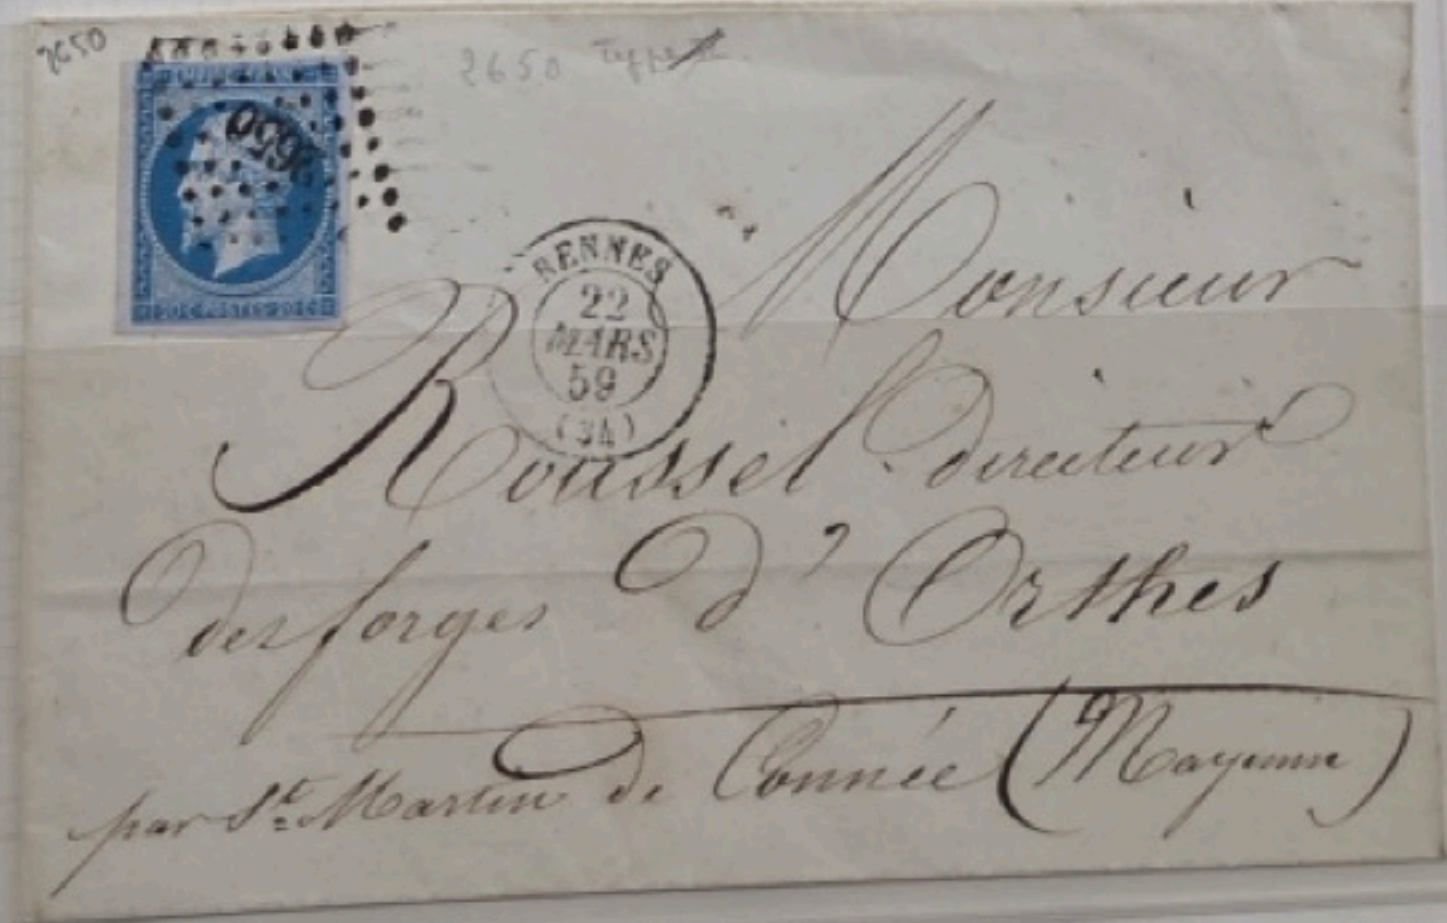 2650
2650 Type
2650
20 C POSTES 20 C
RENNES
22
MARS
59
(34)
Monsieur
Roussel directeur
des forges d'Orthes
par St Martin de Connée (Mayenne)